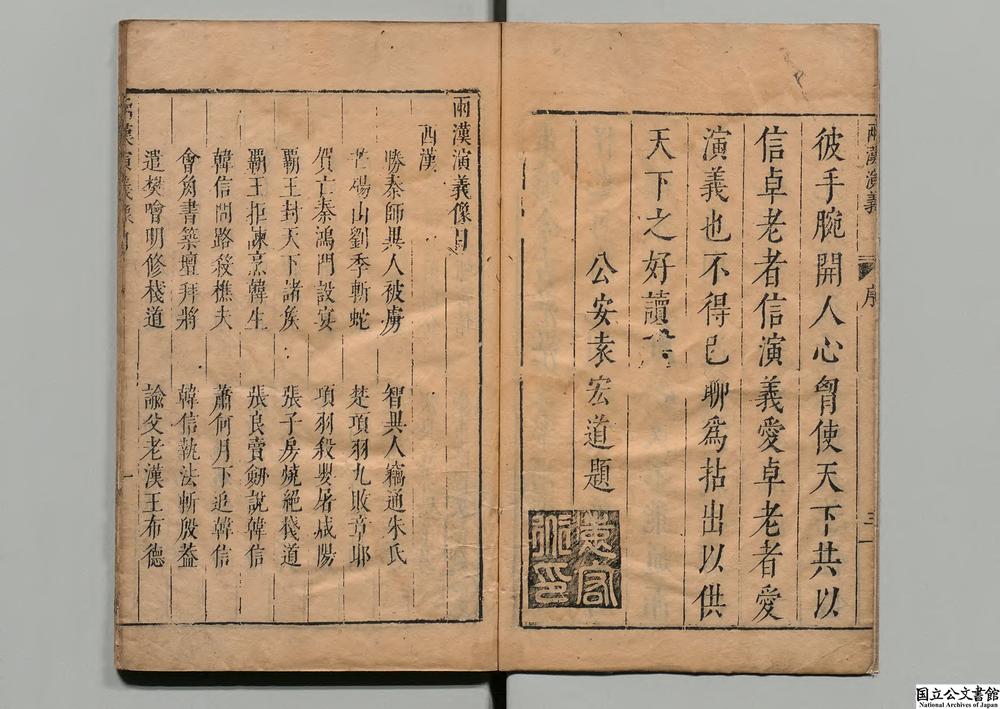 兩漢演義
序
三
彼手腕開人心胷使天下共以
信卓老者信演義愛卓老者愛
演義也不得已聊為拈出以供
天下之好讀書
公安袁宏道題
兩漢演義像目
西漢
勝秦師異人被虜　智異人竊通朱氏
芒碭山劉季斬蛇　楚項羽九敗章邯
賀亡秦鴻門設宴　項羽殺嬰屠咸陽
覇王封天下諸矦　張子房燒絕棧道
覇王拒諫烹韓生　張良賣劒說韓信
韓信問路殺樵夫　蕭何月下追韓信
會角書築壇拜將　韓信執法斬殷蓋
遣樊噲明修棧道　諭父老漢王布德
兩漢演義像目
一
国立公文書館
National Archives of Japan